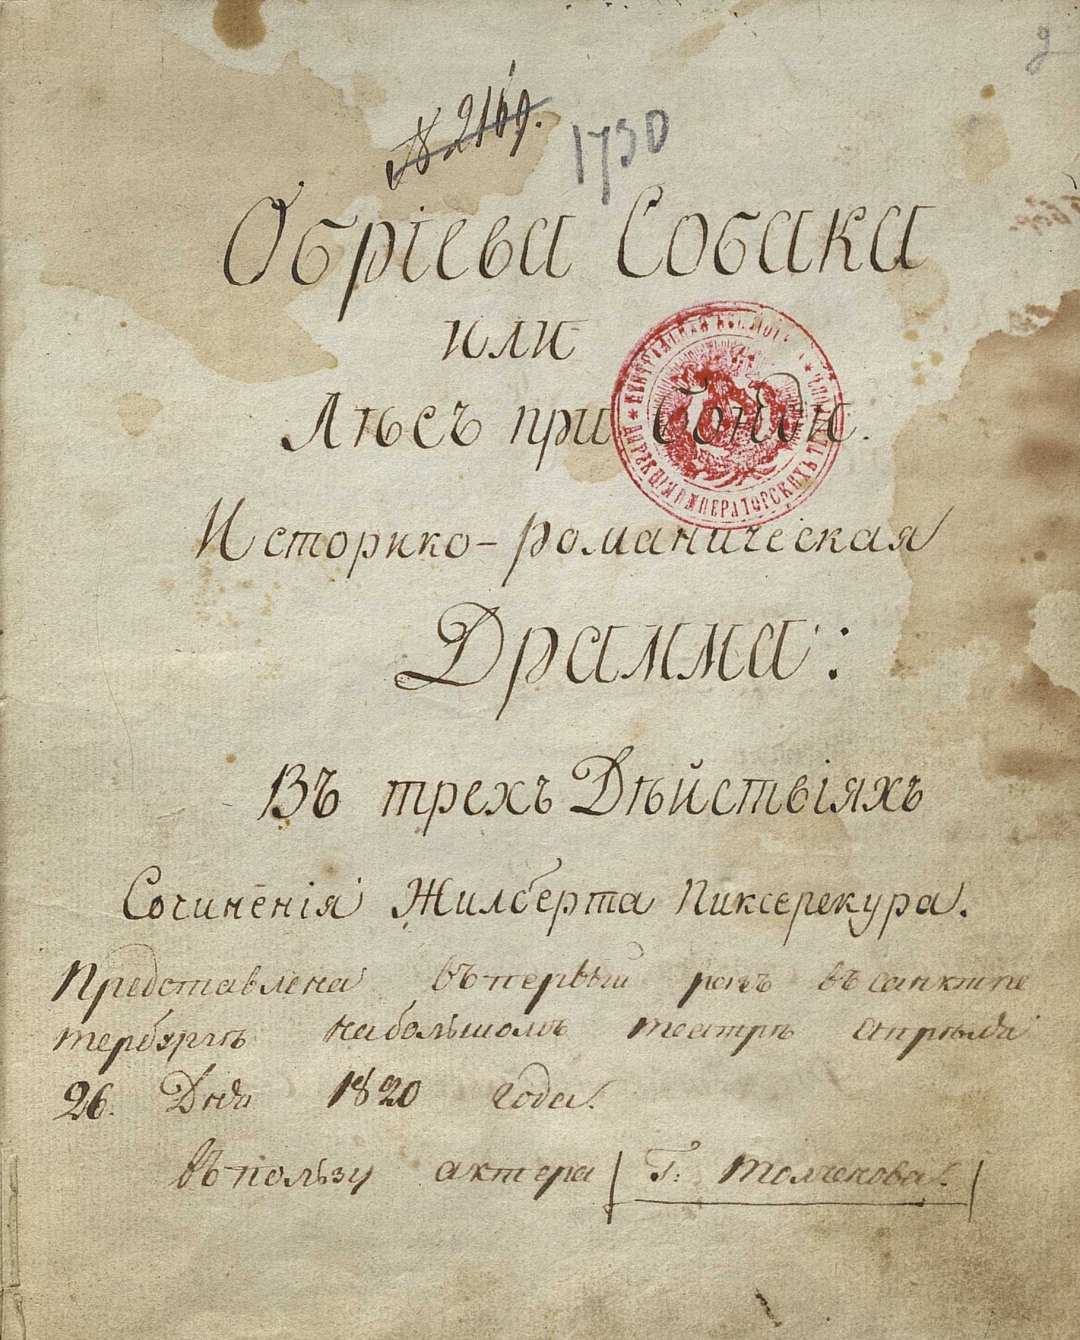 2
№ 2169.
1730
Обріева Собака
или
Лѣсъ при Бондіи.
Историко-романическая
Драмма:
Въ трехъ Дѣйствіяхъ
Сочиненія Жилберта Пиксерекура.
Представлена въпервый разъ въ санктпе
тербургѣ на большомъ театрѣ Апрѣля
26. Дня 1820 года.
въ пользу актера Г. Толченова.
ЦЕНТРАЛЬНАЯ БИБЛІОТЕКА
ДИРЕКЦІИ ИМПЕРАТОРСКИХЪ